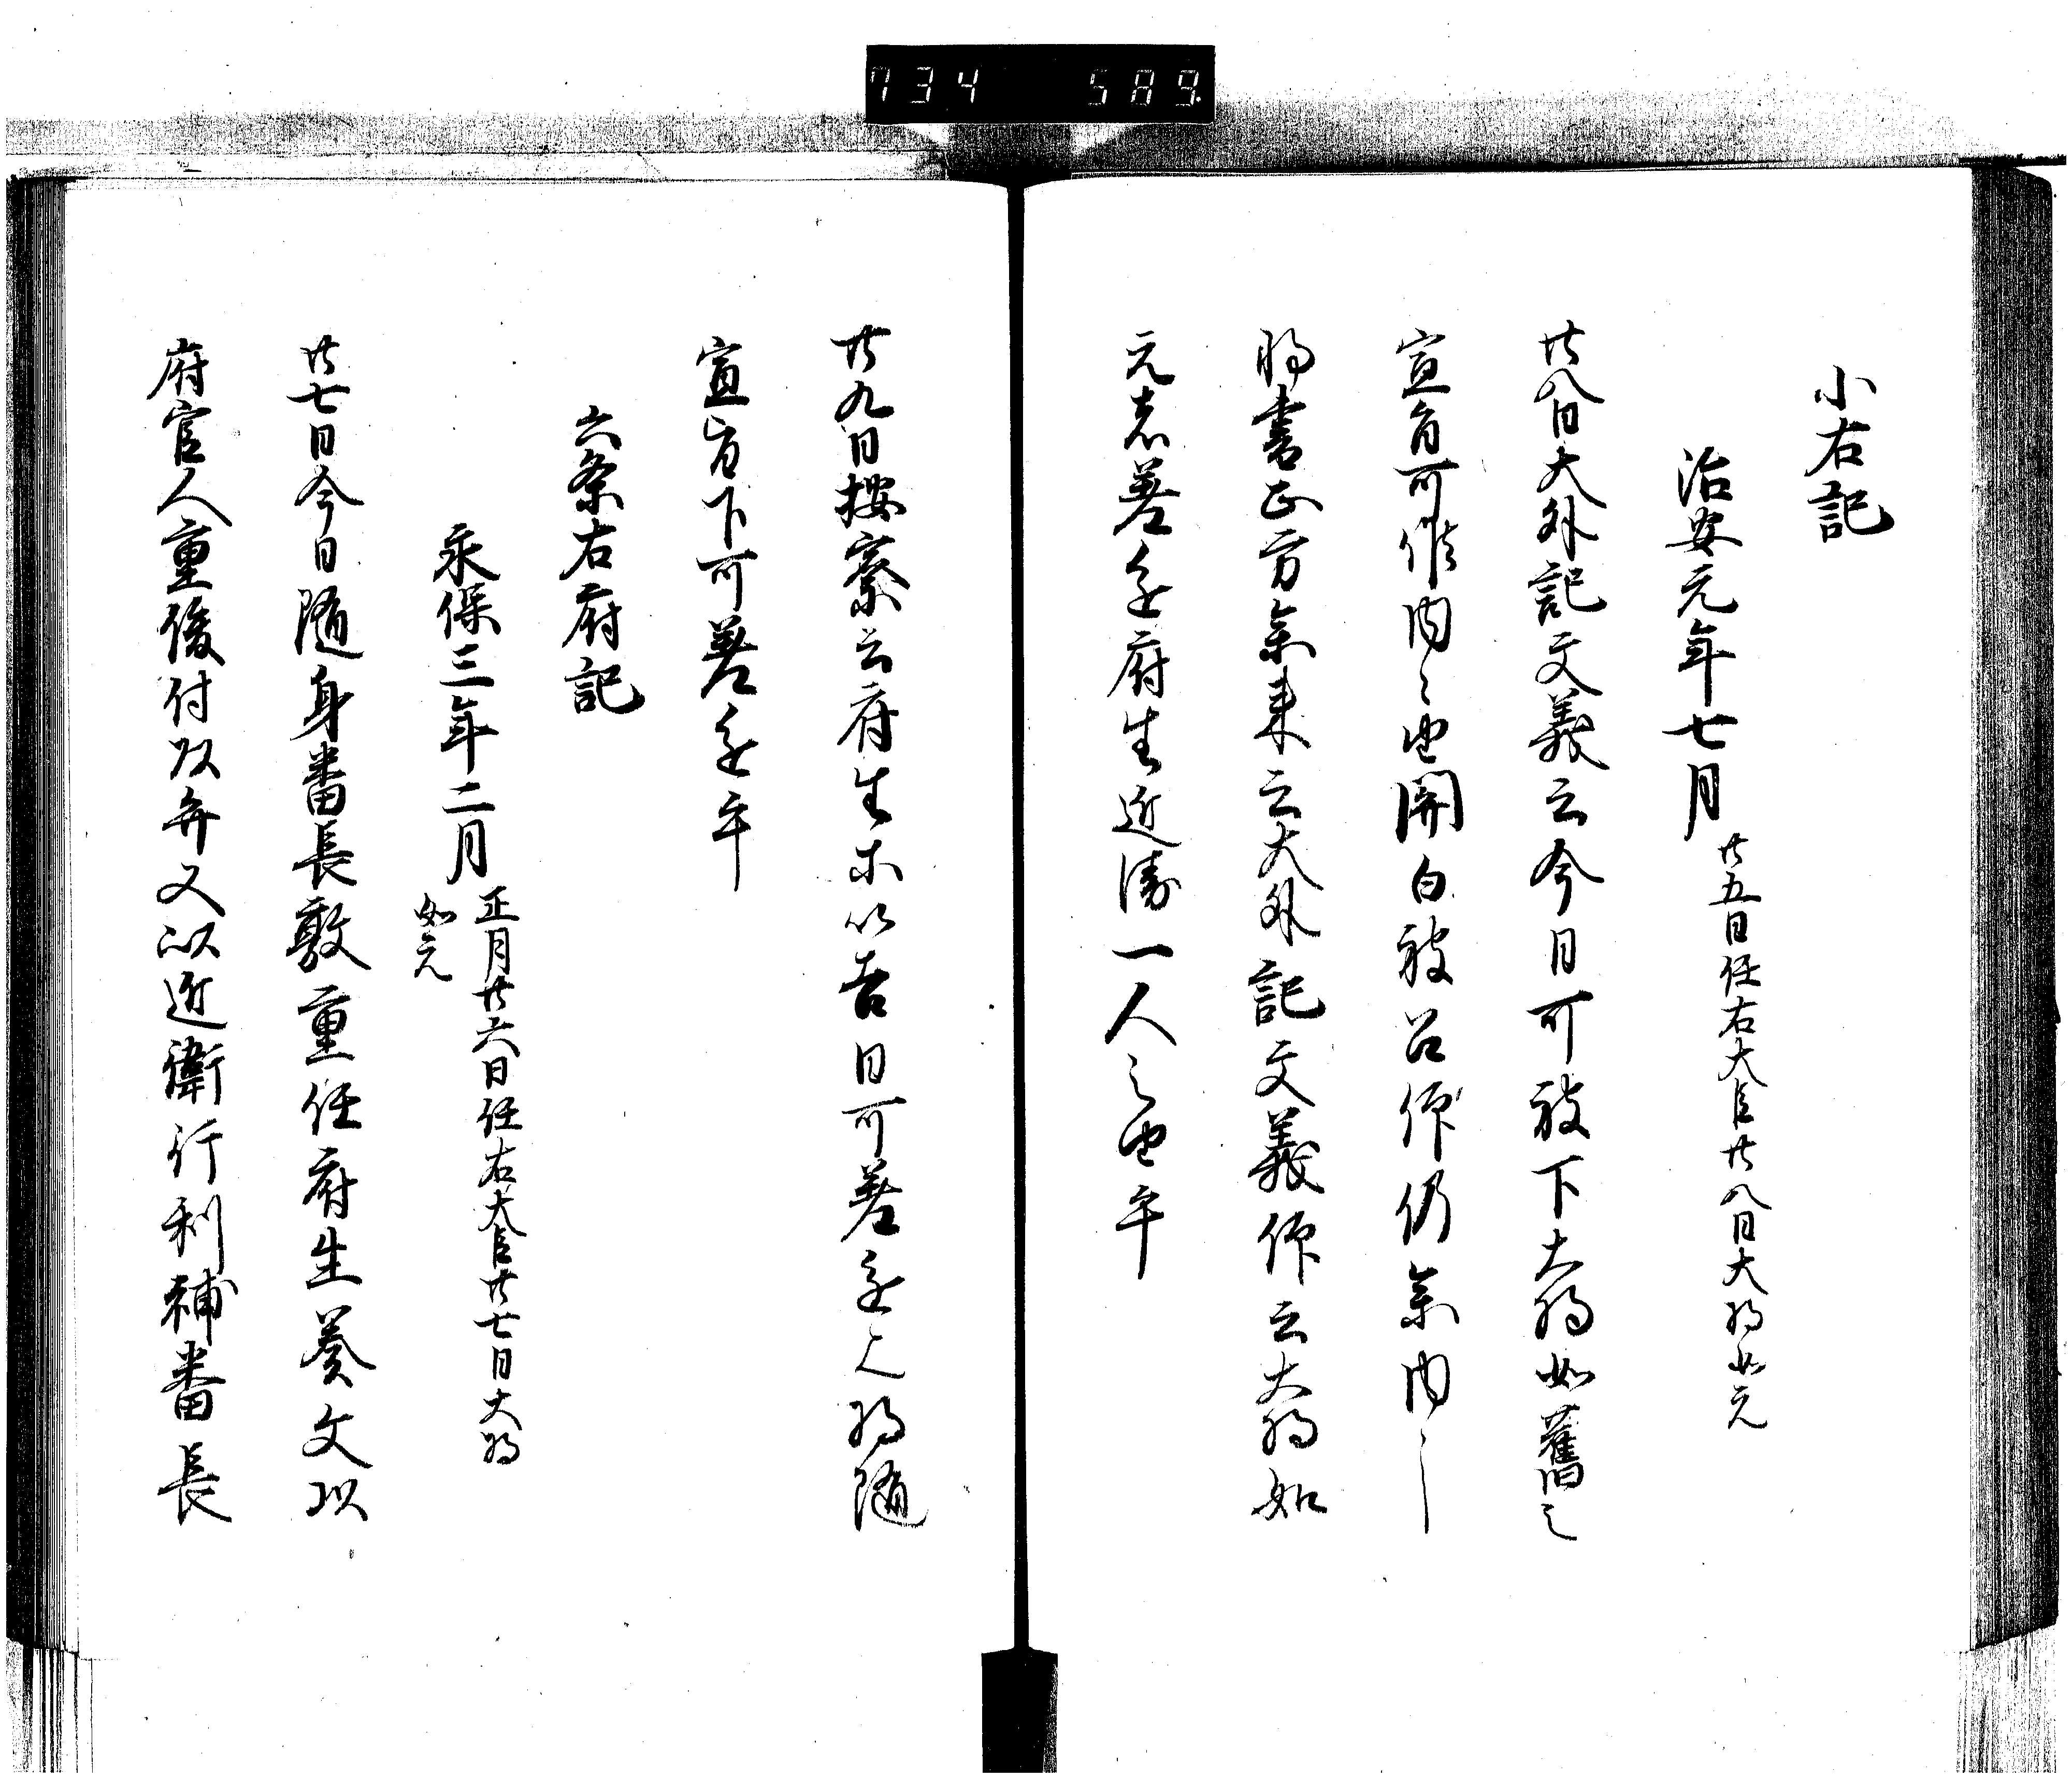 734 589
小右記
治安元年七月 廿五日任右大臣廿八日大将如元
廿八日大外記文義云今日可被下大将如舊之
宣旨可候内之由関白被召仰仍参内
将曹正方参来云大外記文義仰云大将如
元者差進府生近清一人之由
廿九日按察云府生等以吉日可差進之将随
宣旨下可差進
六条右府記
永保三年二月 正月廿六日任右大臣廿七日大将
如元
廿七日今日随身番長敦重任府生奏文以
府官人重俊付以弁又以近衛行利補番長